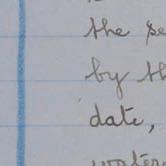 the se
by th
date,